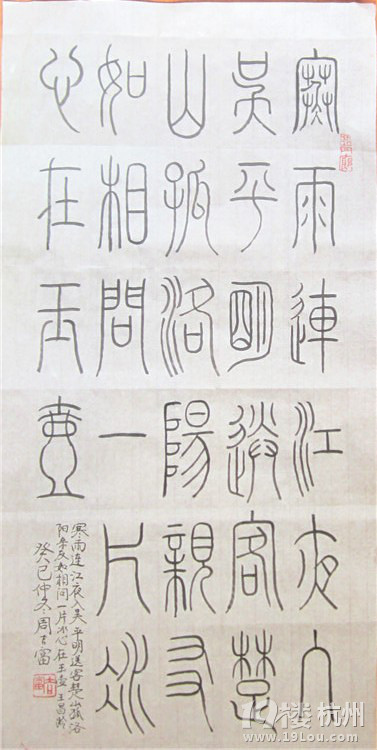 寒雨連江夜入
吳平明送客楚
山孤洛陽親友
如相問一片冰
心在玉壺
寒雨连江夜入吴平明送客楚山孤洛
阳亲友如相问一片冰心在玉壶 王昌龄
癸巳仲冬周富
19楼 杭州
www.19lou.com